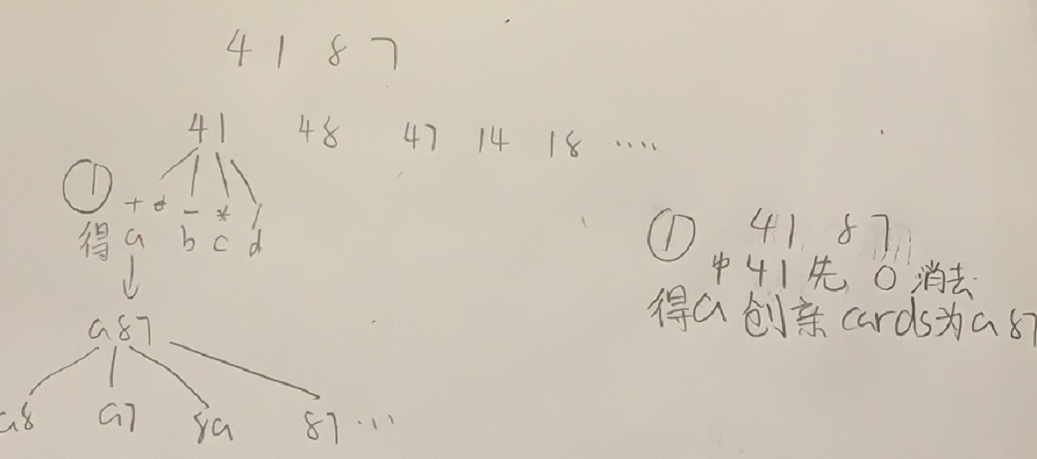 4 1 8 7
41 48 47 14 18 .....
① + - * /
得 a b c d
a87
a8 a7 8a 87 ...
① 41 87
中 41 先 0 消去
得a 创亲 cards为a 87